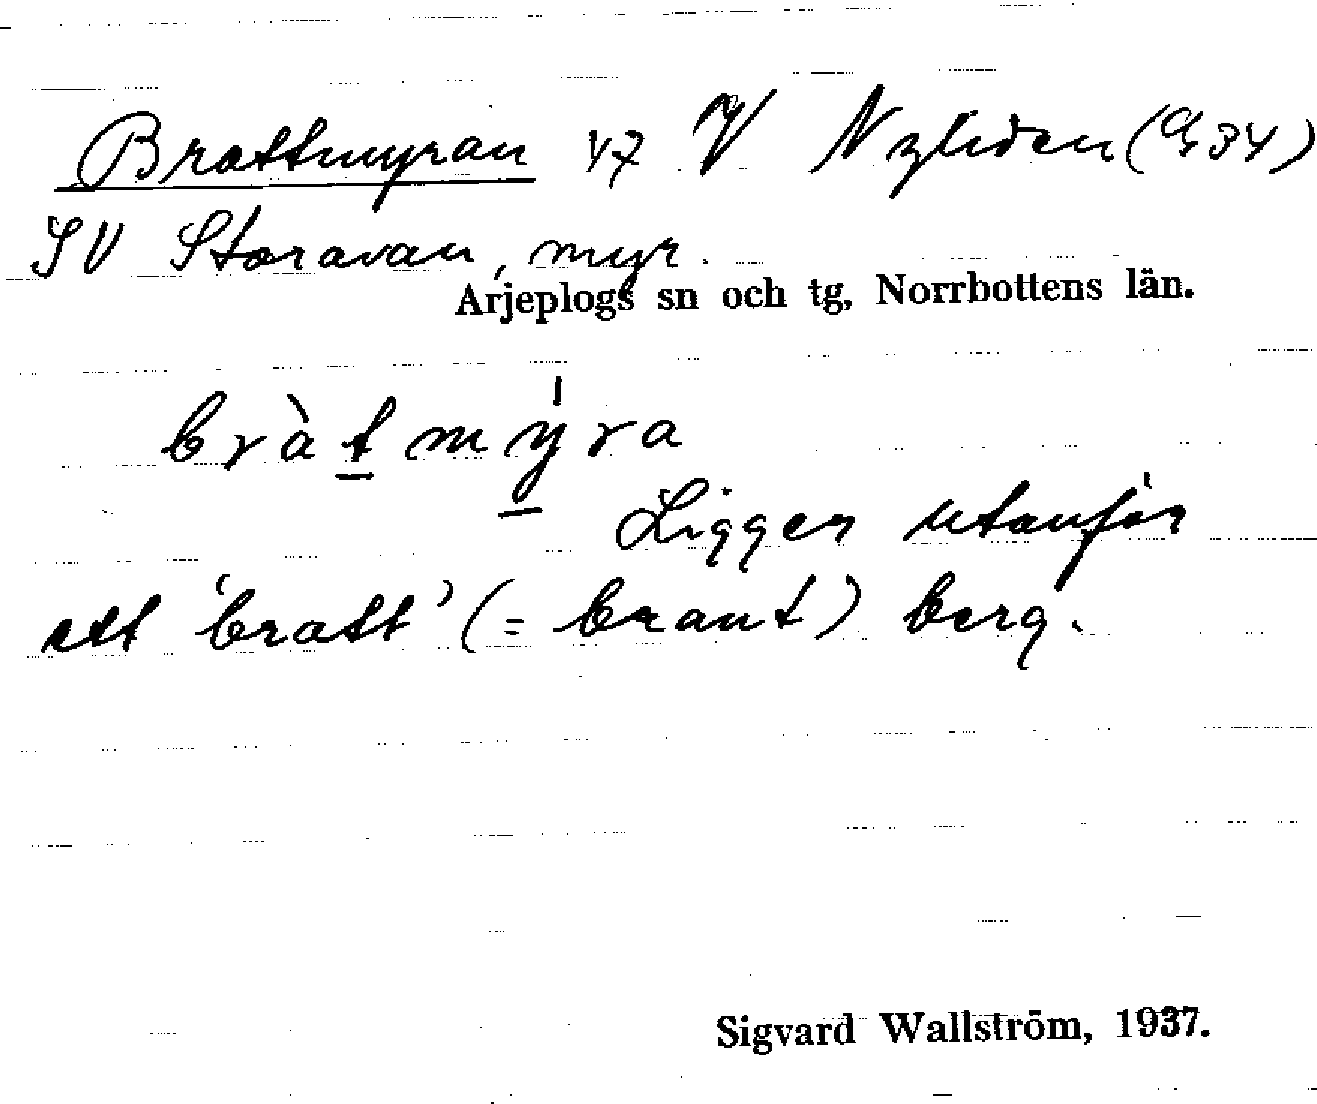 Brattmyran 47 V Nyliden (G 34)
SV Storavan, myr.
Arjeplogs sn och tg, Norrbottens län.
bràtmýra
Ligger utanför
ett 'bratt' (= brant) berg.
Sigvard Wallström, 1937.